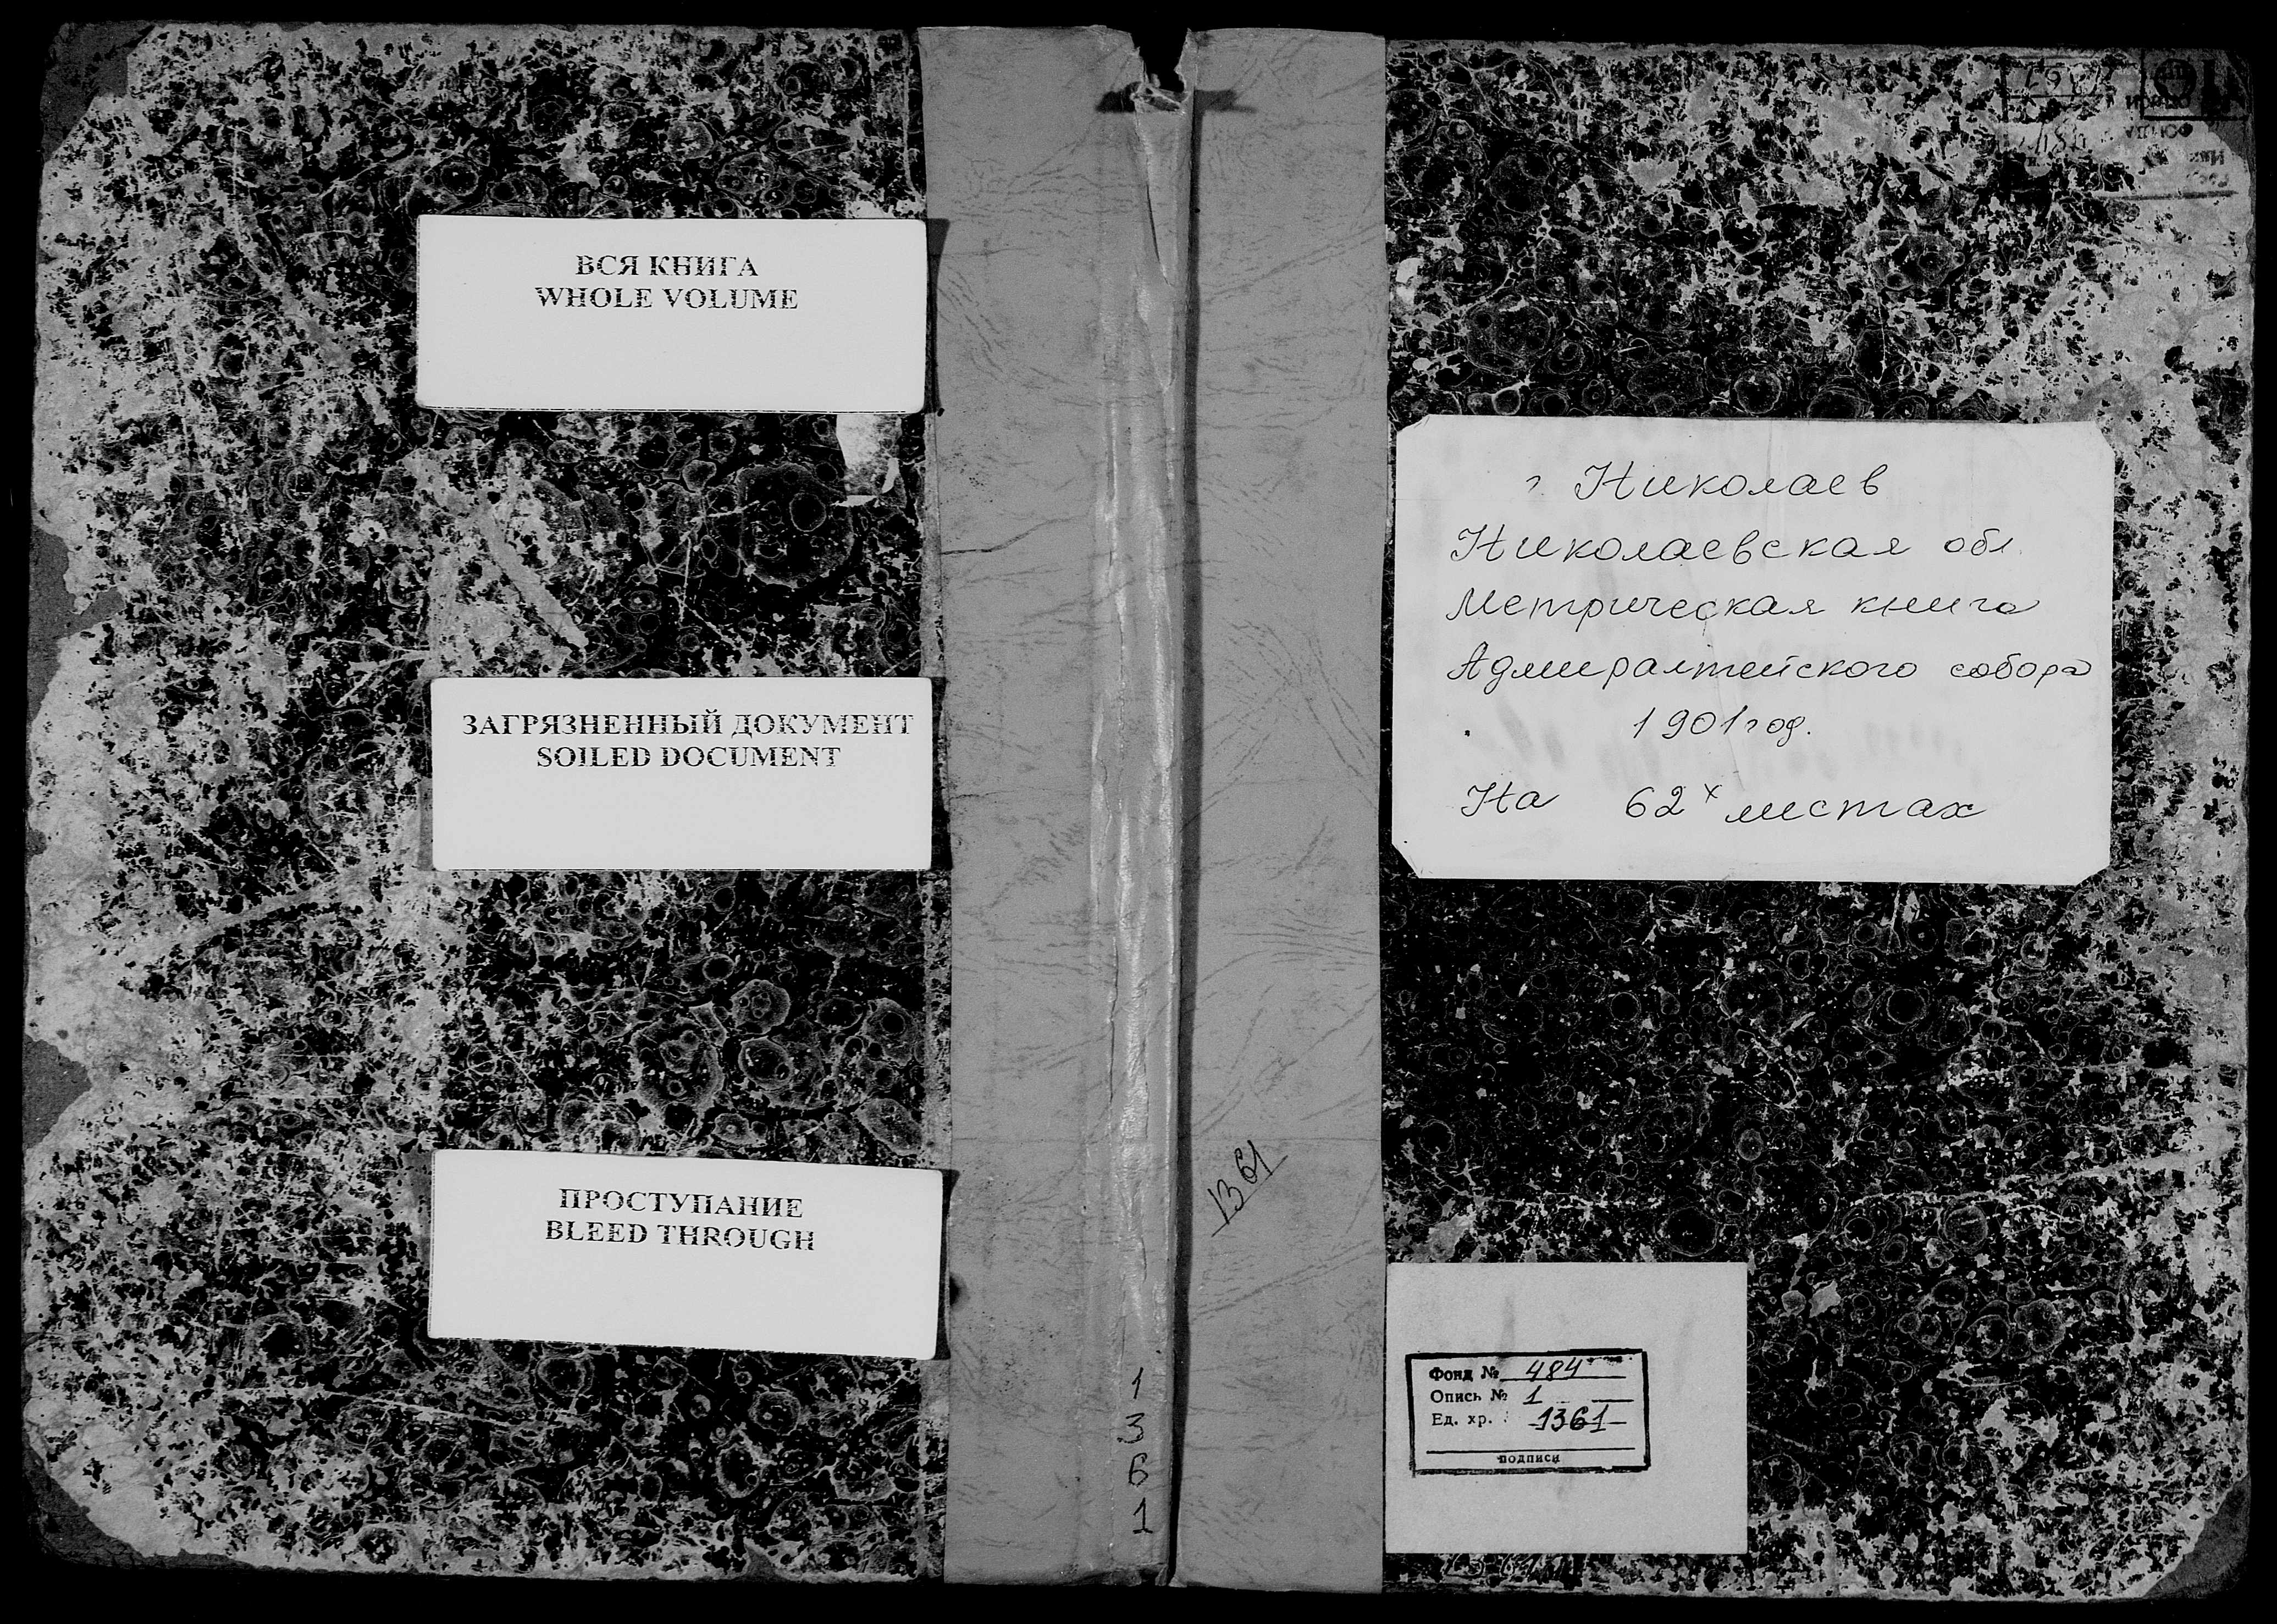 ВСЯ КНИГА
WHOLE VOLUME
ЗАГРЯЗНЕННЫЙ ДОКУМЕНТ
SOILED DOCUMENT
ПРОСТУПАНИЕ
BLEED THROUGH
1361
1
3
6
1
г. Николаев
Николаевская обл.
Метрическая книга
Адмиралтейского собора
1901 год.
На 62х листах
Фонд № 484
Опись № 1
Ед. хр. 1361
подписи